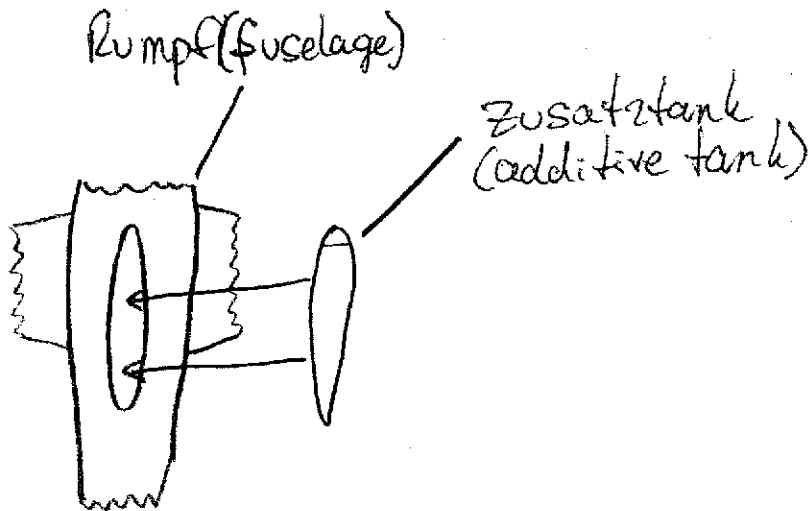 Rumpf(fuselage)
Zusatztank
(additive tank)